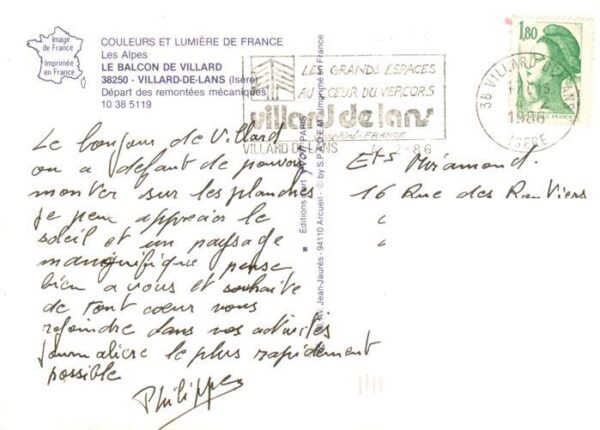 Image
de France
Imprimée
en France
COULEURS ET LUMIÈRE DE FRANCE
Les Alpes
LE BALCON DE VILLARD
38250 - VILLARD-DE-LANS (Isère)
Départ des remontées mécaniques
10 38 5119
LES GRANDS ESPACES
AU CŒUR DU VERCORS
villard de lans
FRANCE
VILLARD DE LANS
2-86
38 VILLARD
1986
ISERE
1,80
FRANCE
Le bonjour de Villard
ou a défaut de pouvoir
monter sur les planches
je peux apprécier le
soleil et un paysage
pense
bien a vous et souhaite
de tout cœur vous
rejoindre dans vos activités
journalière le plus rapidement
possible
Philippe
Ets Miramond.
16 Rue des
Editions d'art YVON PARIS
Av. Jean-Jaurès - 94110 Arcueil - © by S.P.A.D.E.M. Imprimé en France